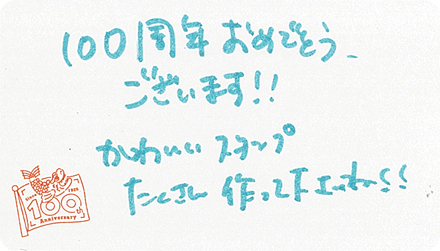 100周年おめでとう
ございます!!
かわいいスタンプ
たくさん作って下さい!!
100th
Anniversary